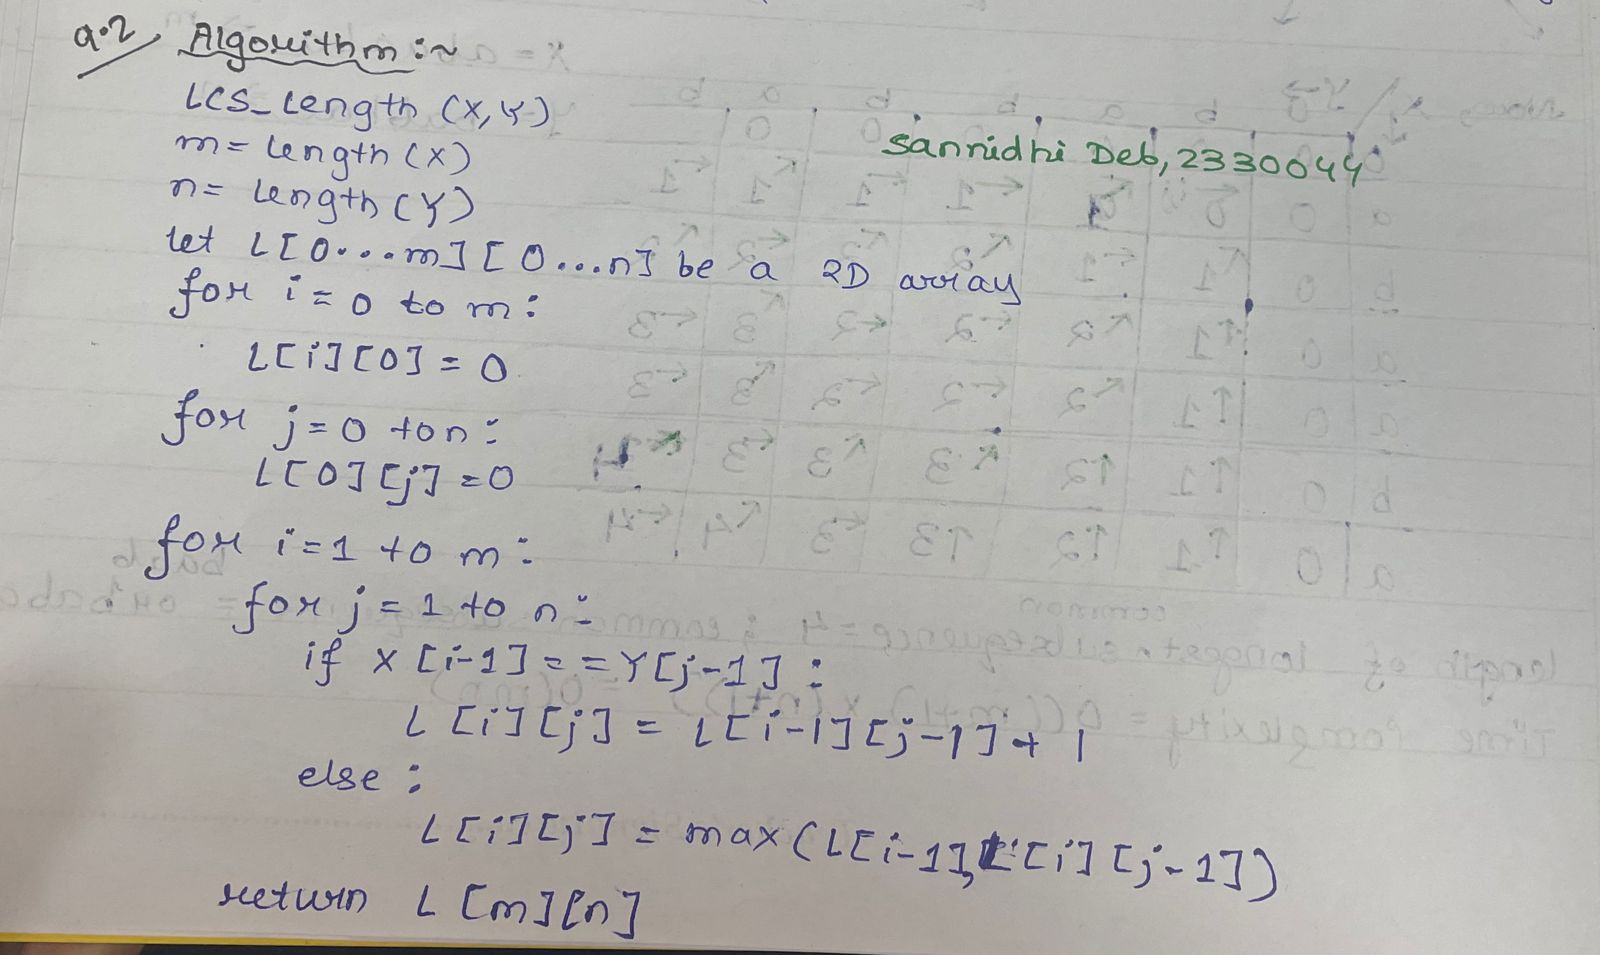 Q.2 Algorithm :~
LCS_Length (X, Y)
Sannidhi Deb, 2330044
m = length (X)
n = length (Y)
let L[0...m][0...n] be a 2D array
for i = 0 to m :
L[i][0] = 0
for j = 0 to n :
L[0][j] = 0
for i = 1 to m :
for j = 1 to n :
if X[i-1] == Y[j-1] :
L[i][j] = L[i-1][j-1] + 1
else :
L[i][j] = max(L[i-1], L[i][j-1])
return L[m][n]